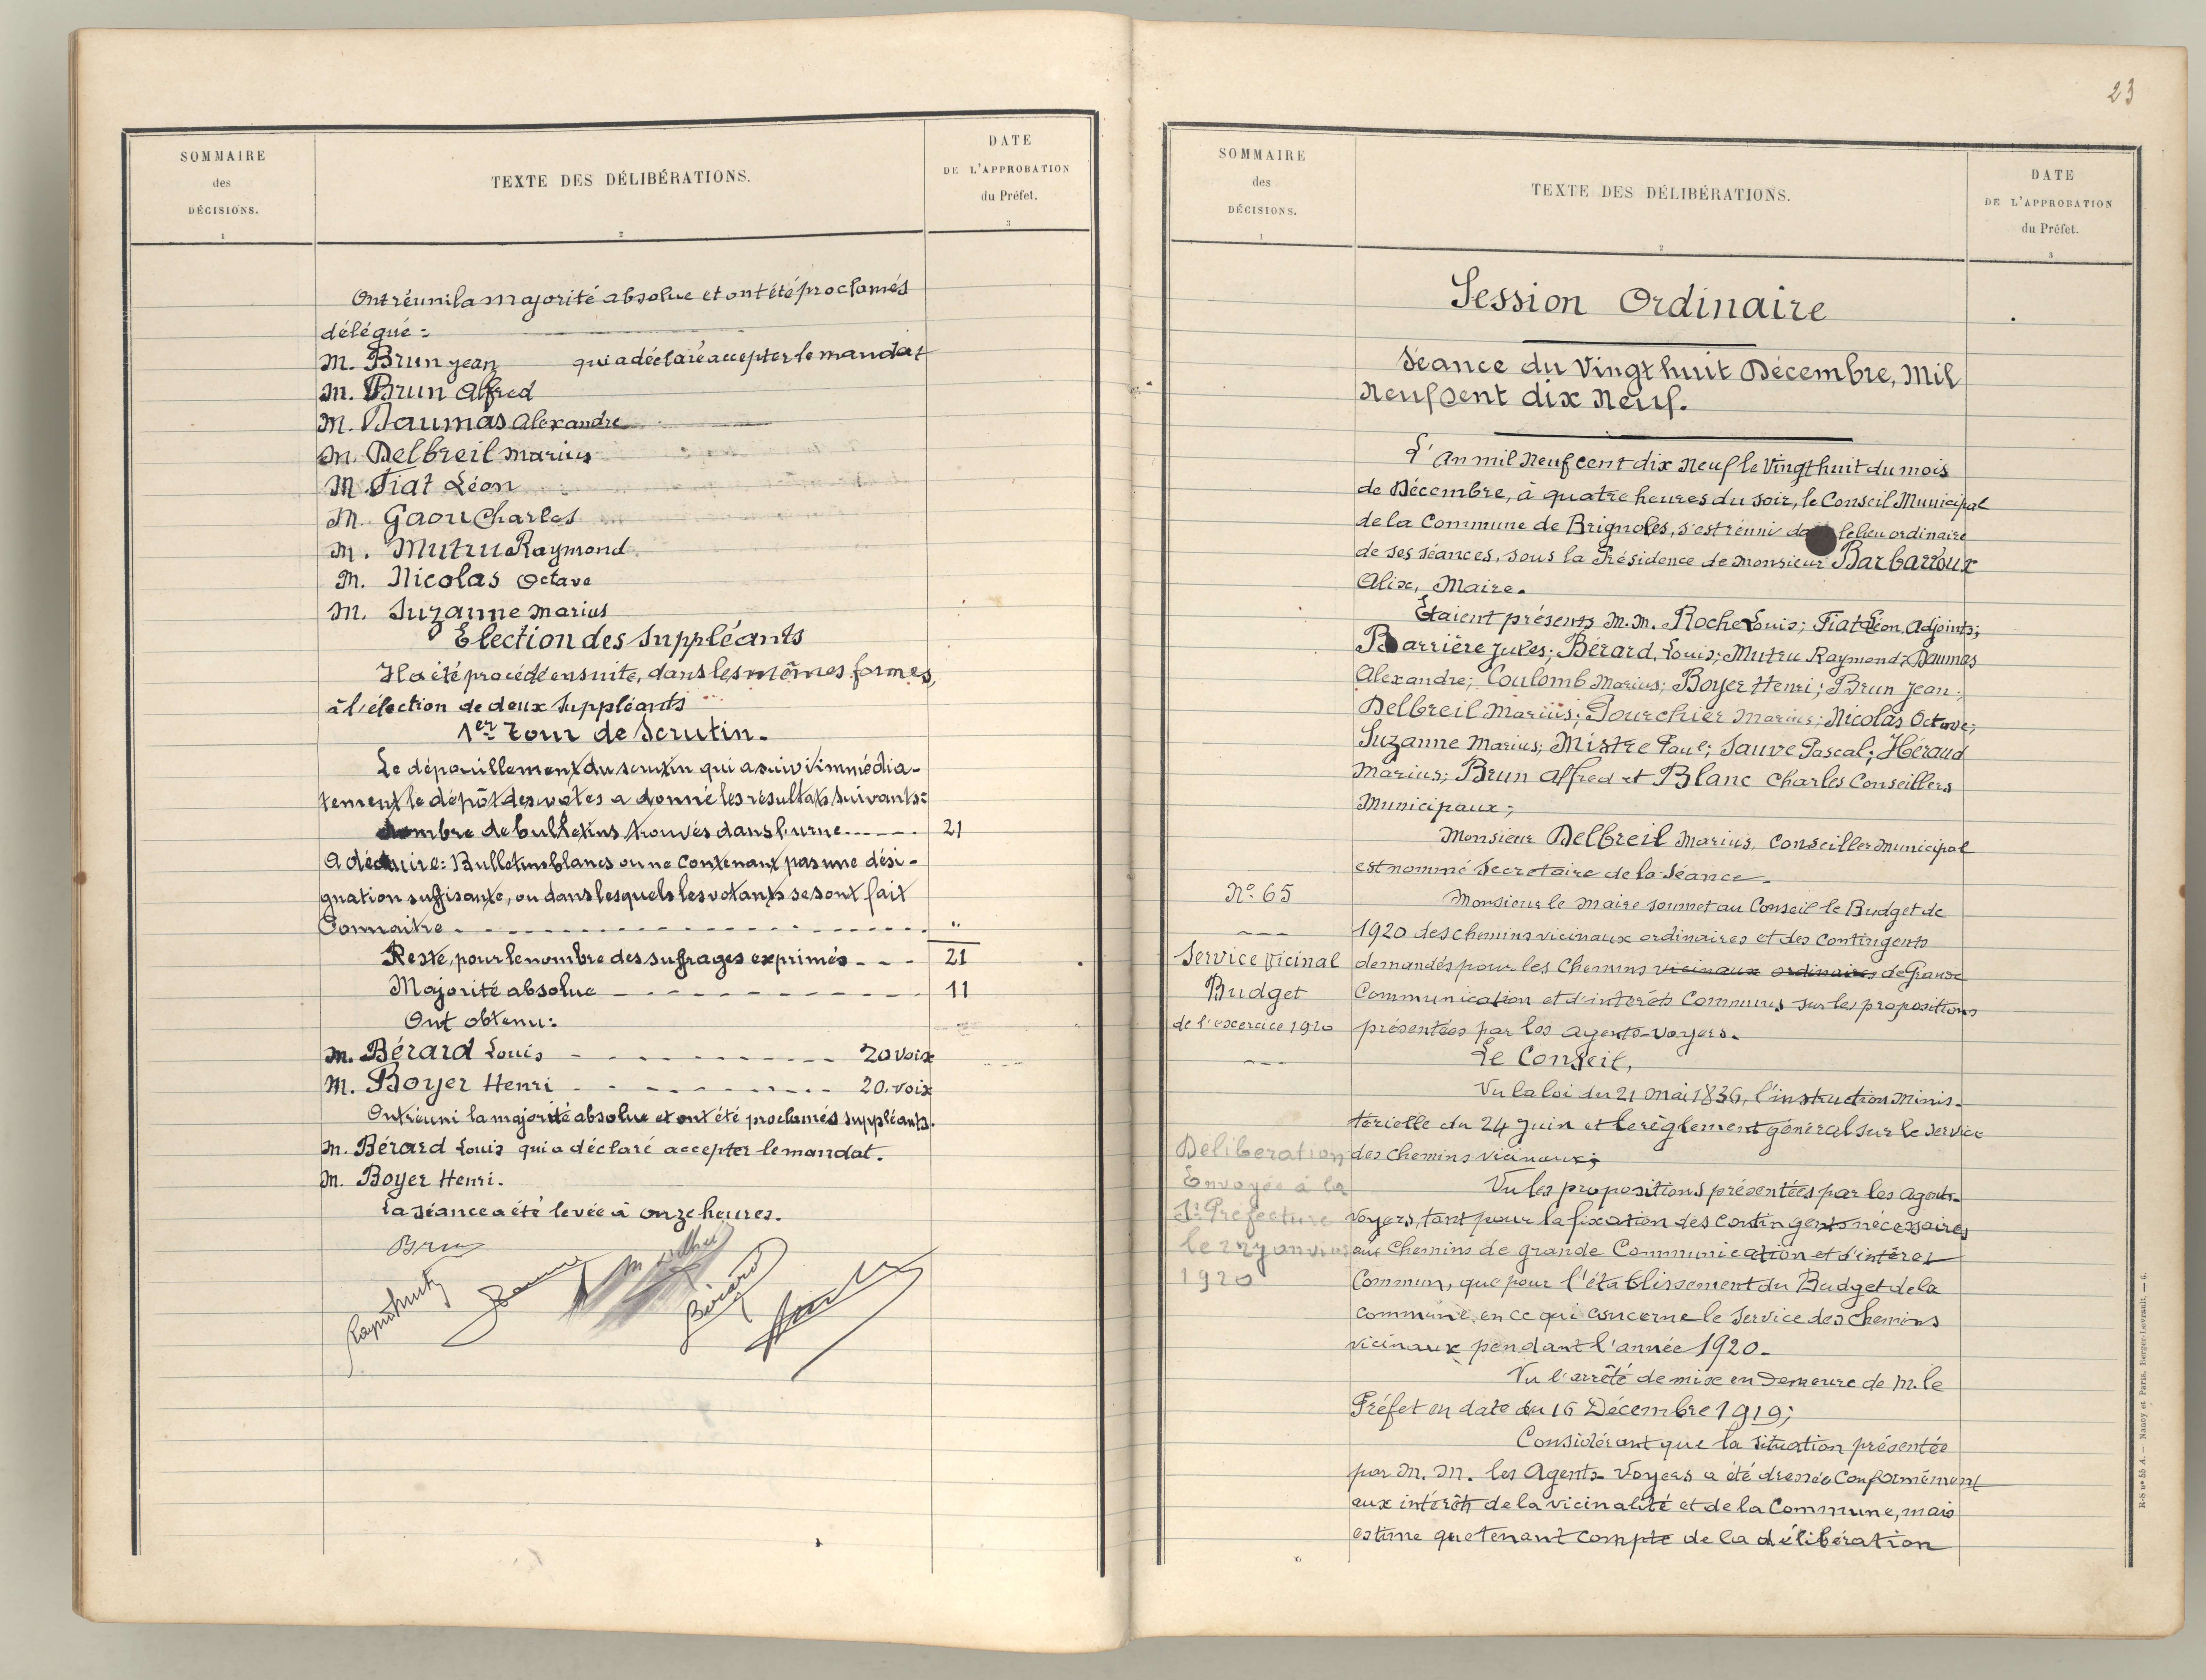 SOMMAIRE
des
DÉCISIONS.
1
TEXTE DES DÉLIBÉRATIONS.
2
DATE
DE L'APPROBATION
du Préfet.
3
Ont réuni la majorité absolue et ont été proclamés
délégué :
M. Brun Jean qui a déclaré accepter le mandat
M. Brun Alfred
M. Daumas Alexandre
M. Delbreil Marius
M. Fiat Léon
M. Gaou Charles
M. Mutru Raymond
M. Nicolas Octave
M. Suzanne Marius
Election des Suppléants
Il a été procédé ensuite, dans les mêmes formes,
à l'élection de deux Suppléants
1er Tour de Scrutin.
Le dépouillement du scrutin qui a suivi immédia-
tement le dépôt des votes a donné les résultats suivants :
Nombre de bulletins trouvés dans l'urne 21
A déduire : Bulletins blancs ou ne contenant pas une dési-
gnation suffisante, ou dans lesquels les votants se sont fait
Connaitre "
Reste, pour le nombre des suffrages exprimés 21
Majorité absolue 11
Ont obtenu :
M. Bérard Louis 20 voix
M. Boyer Henri 20. voix
Ont réuni la majorité absolue et ont été proclamés suppléants.
M. Bérard Louis qui a déclaré accepter le mandat.
M. Boyer Henri.
La séance a été levée à onze heures.
Brun
Bérard
23
SOMMAIRE
des
DÉCISIONS.
1
TEXTE DES DÉLIBÉRATIONS.
2
DATE
DE L'APPROBATION
du Préfet.
3
Session Ordinaire
Séance du Vingt huit Décembre, Mil
Neuf Cent dix Neuf.
L'An mil Neuf cent dix Neuf le Vingt huit du mois
de Décembre, à quatre heures du soir, le Conseil Municipal
de la Commune de Brignoles, s'est réuni da le lieu ordinaire
de ses séances, sous la Présidence de Monsieur Barbarroux
Alix, Maire.
Étaient présents M.M. Roche Louis; Fiat Léon, Adjoints;
Barrière Jules; Bérard, Louis; Mutru Raymond; Daumas
Alexandre; Coulomb Marius; Boyer Henri; Brun Jean;
Delbreil Marius; Fourchier Marius; Nicolas Octave;
Suzanne Marius; Mistre Paul; Sauve Pascal; Héraud
Marius; Brun Alfred et Blanc Charles Conseillers
Municipaux;
Monsieur Delbreil Marius, Conseiller Municipal
est nommé Secretaire de la Séance.
No 65
Service Vicinal
Budget
de l'exercice 1920
Monsieur le Maire soumet au Conseil le Budget de
1920 des chemins vicinaux ordinaires et des Contingents
demandés pour les Chemins vicinaux ordinaires de Grande
Communication et d'intérêts Communs sur les propositions
présentées par les Agents-Voyers.
Le Conseil,
Vu la loi du 21 Mai 1836, l'instruction Minis-
térielle du 24 Juin et le règlement général sur le Service
des Chemins vicinaux;
Deliberation
Envoyée à la
Sr Préfecture
le 2 Janvier
1920
Vu les propositions présentées par les Agents-
Voyers, tant pour la fixation des contingents nécessaires
aux Chemins de grande Communication et d'intérêt
Commun, que pour l'établissement du Budget de la
Commune, en ce qui concerne le Service des Chemins
vicinaux pendant l'année 1920.
Vu l'arrêté de mise en Demeure de M. le
Préfet en date du 16 Décembre 1919;
Considérant que la situation présentée
par M.M. les Agents-Voyers a été dressée Conformément
aux intérêts de la vicinalité et de la Commune, mais
estime que tenant compte de la délibération
R-S no 55 A. — Nancy et Paris. Berger-Levrault. — 6.